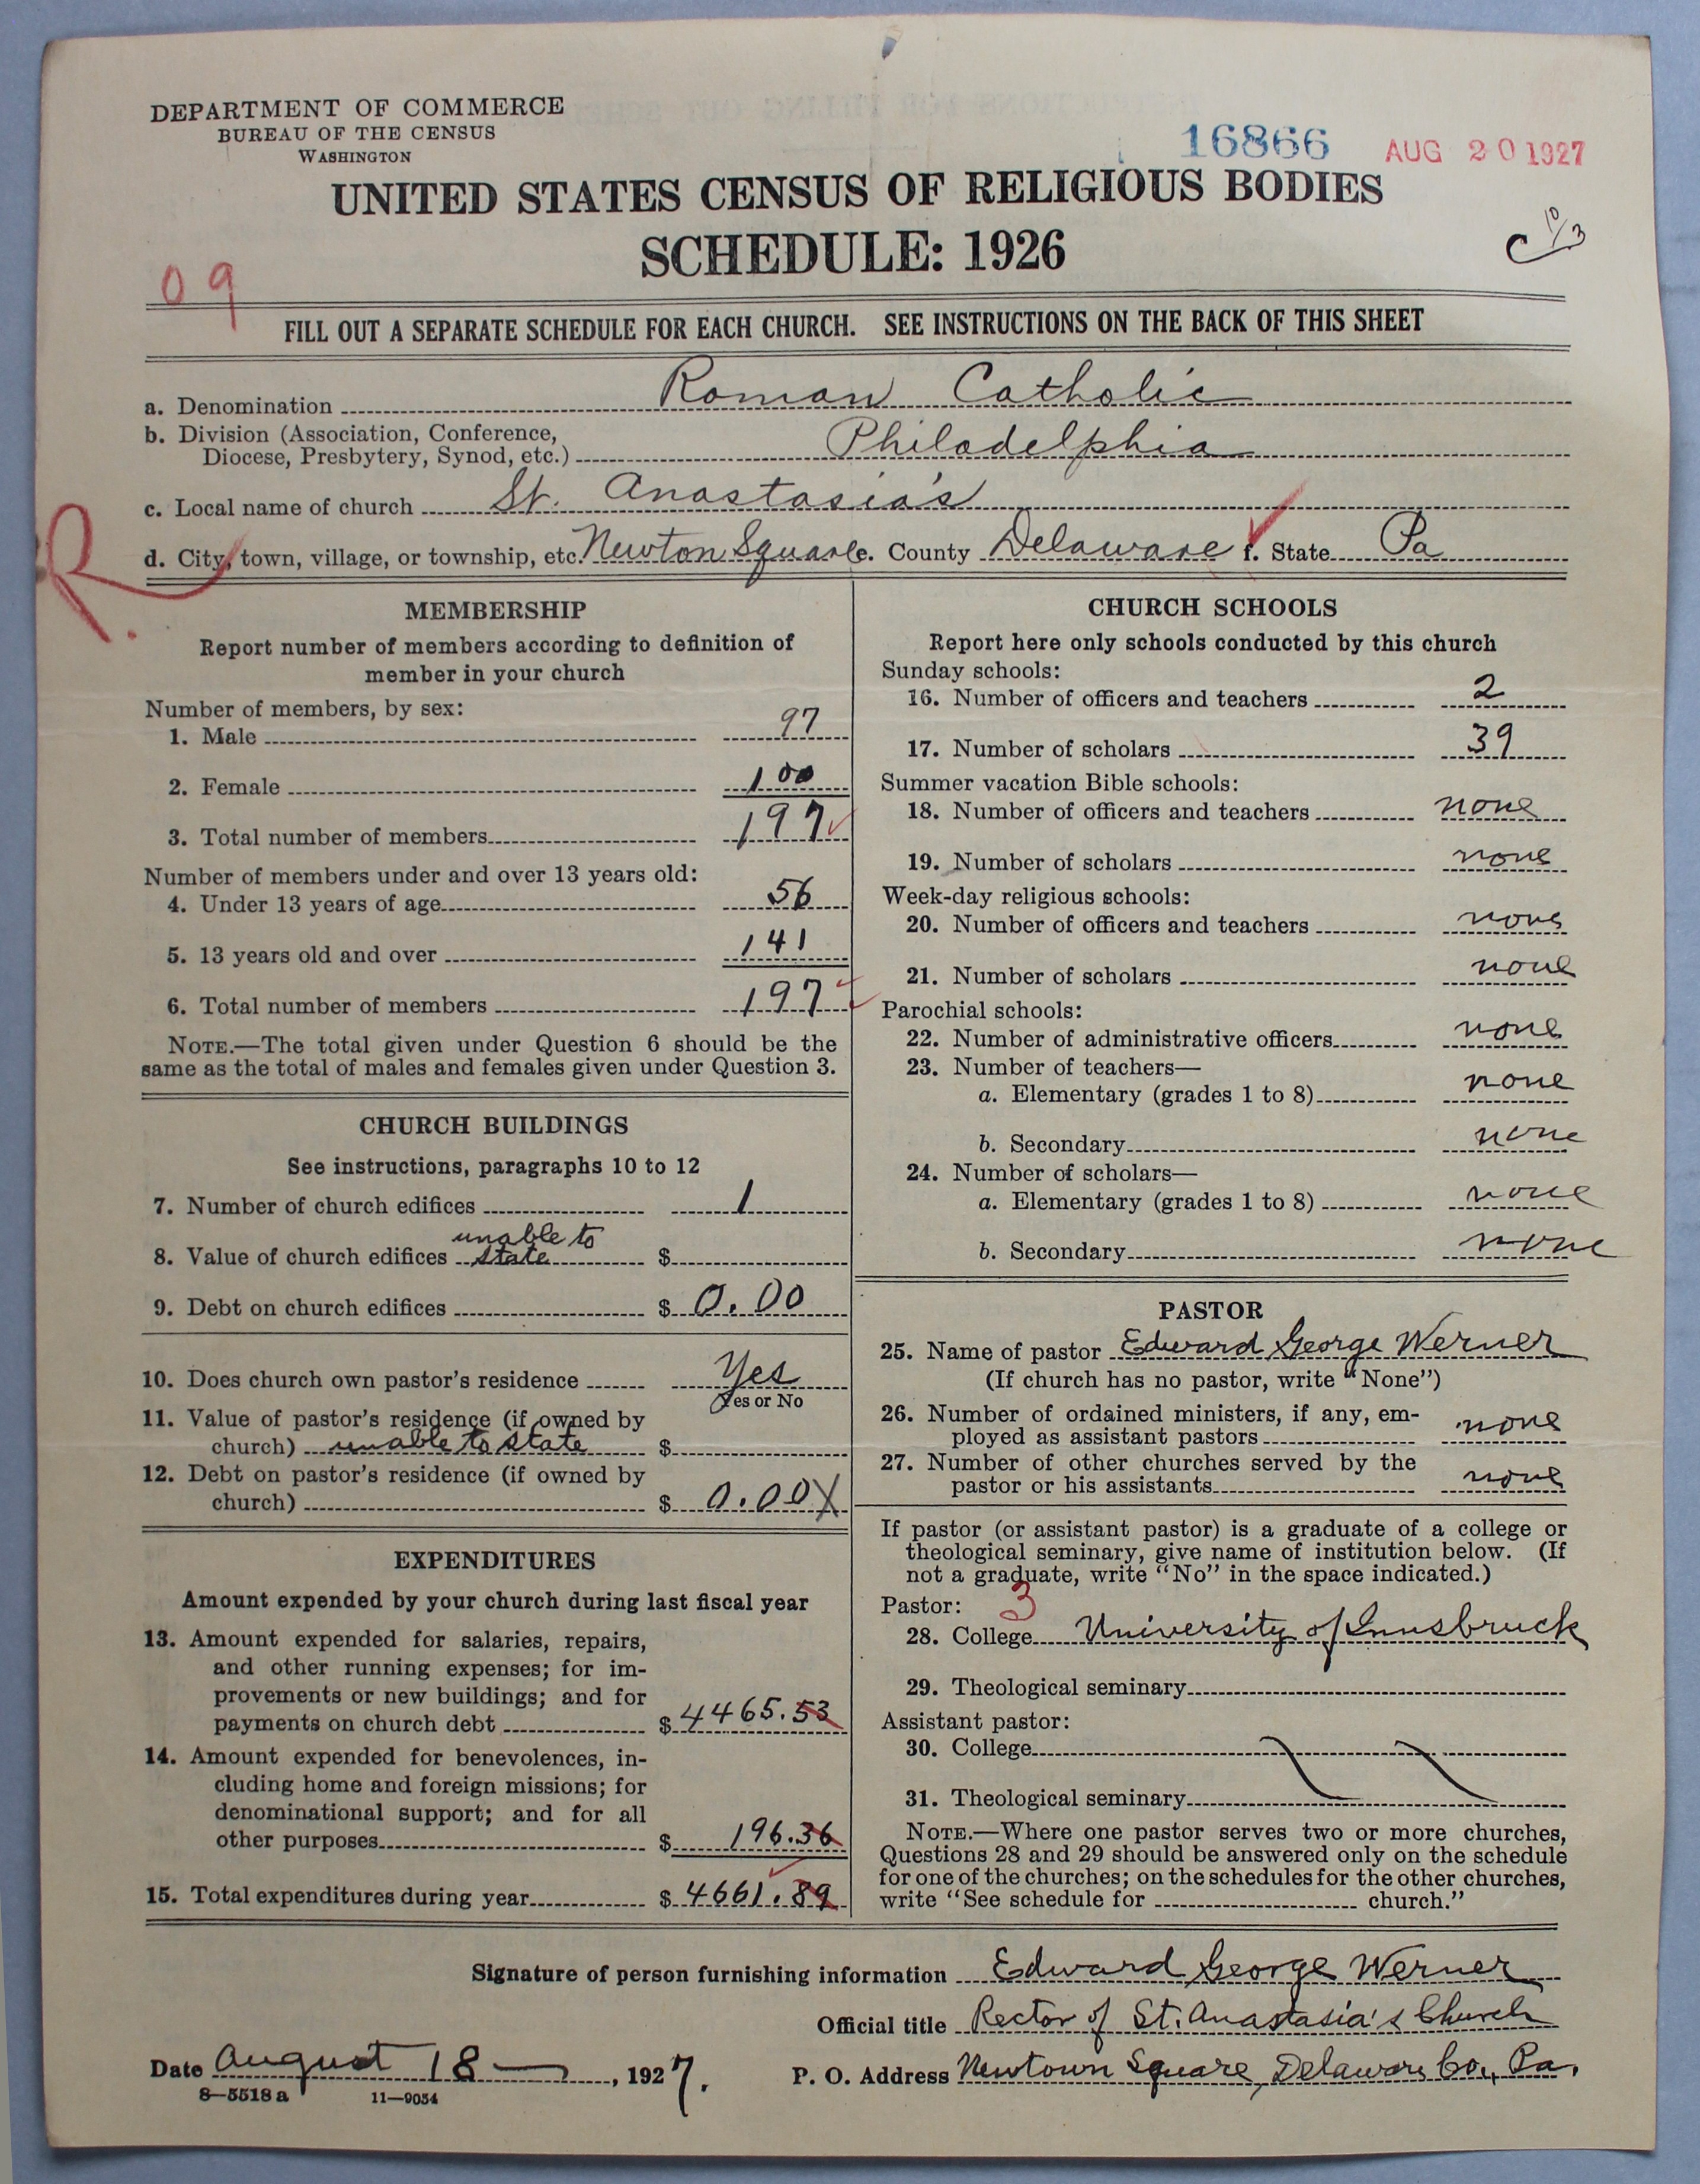 DEPARTMENT OF COMMERCE
BUREAU OF THE CENSUS
WASHINGTON
16866 AUG 20 1927
UNITED STATES CENSUS OF RELIGIOUS BODIES
SCHEDULE: 1926
C 10/3
09
FILL OUT A SEPARATE SCHEDULE FOR EACH CHURCH. SEE INSTRUCTIONS ON THE BACK OF THIS SHEET
a. Denomination Roman Catholic
b. Division (Association, Conference,
Diocese, Presbytery, Synod, etc.) Philadelphia
c. Local name of church St. Anastasia's
d. City, town, village, or township, etc. Newton Square e. County Delaware f. State Pa
R.
MEMBERSHIP
Report number of members according to definition of
member in your church
Number of members, by sex:
1. Male 97
2. Female 100
3. Total number of members 197
Number of members under and over 13 years old:
4. Under 13 years of age 56
5. 13 years old and over 141
6. Total number of members 197
NOTE.—The total given under Question 6 should be the
same as the total of males and females given under Question 3.
CHURCH BUILDINGS
See instructions, paragraphs 10 to 12
7. Number of church edifices 1
unable to
8. Value of church edifices state $
9. Debt on church edifices $ 0.00
10. Does church own pastor's residence Yes
Yes or No
11. Value of pastor's residence (if owned by
church) unable to state $
12. Debt on pastor's residence (if owned by
church) $ 0.00 X
EXPENDITURES
Amount expended by your church during last fiscal year
13. Amount expended for salaries, repairs,
and other running expenses; for im-
provements or new buildings; and for
payments on church debt $ 4465.53
14. Amount expended for benevolences, in-
cluding home and foreign missions; for
denominational support; and for all
other purposes $ 196.36
15. Total expenditures during year $ 4661.89
CHURCH SCHOOLS
Report here only schools conducted by this church
Sunday schools:
16. Number of officers and teachers 2
17. Number of scholars 39
Summer vacation Bible schools:
18. Number of officers and teachers none
19. Number of scholars none
Week-day religious schools:
20. Number of officers and teachers none
21. Number of scholars none
Parochial schools:
22. Number of administrative officers none
23. Number of teachers—
a. Elementary (grades 1 to 8) none
b. Secondary none
24. Number of scholars—
a. Elementary (grades 1 to 8) none
b. Secondary none
PASTOR
25. Name of pastor Edward George Werner
(If church has no pastor, write "None")
26. Number of ordained ministers, if any, em-
ployed as assistant pastors none
27. Number of other churches served by the
pastor or his assistants none
If pastor (or assistant pastor) is a graduate of a college or
theological seminary, give name of institution below. (If
not a graduate, write "No" in the space indicated.)
Pastor: 3
28. College University of Innsbruck
29. Theological seminary
Assistant pastor:
30. College
31. Theological seminary
NOTE.—Where one pastor serves two or more churches,
Questions 28 and 29 should be answered only on the schedule
for one of the churches; on the schedules for the other churches,
write "See schedule for church."
Signature of person furnishing information Edward George Werner
Official title Rector of St. Anastasia's Church
Date August 18 , 1927. P. O. Address Newtown Square, Delaware Co., Pa.
8—5518 a 11—9054